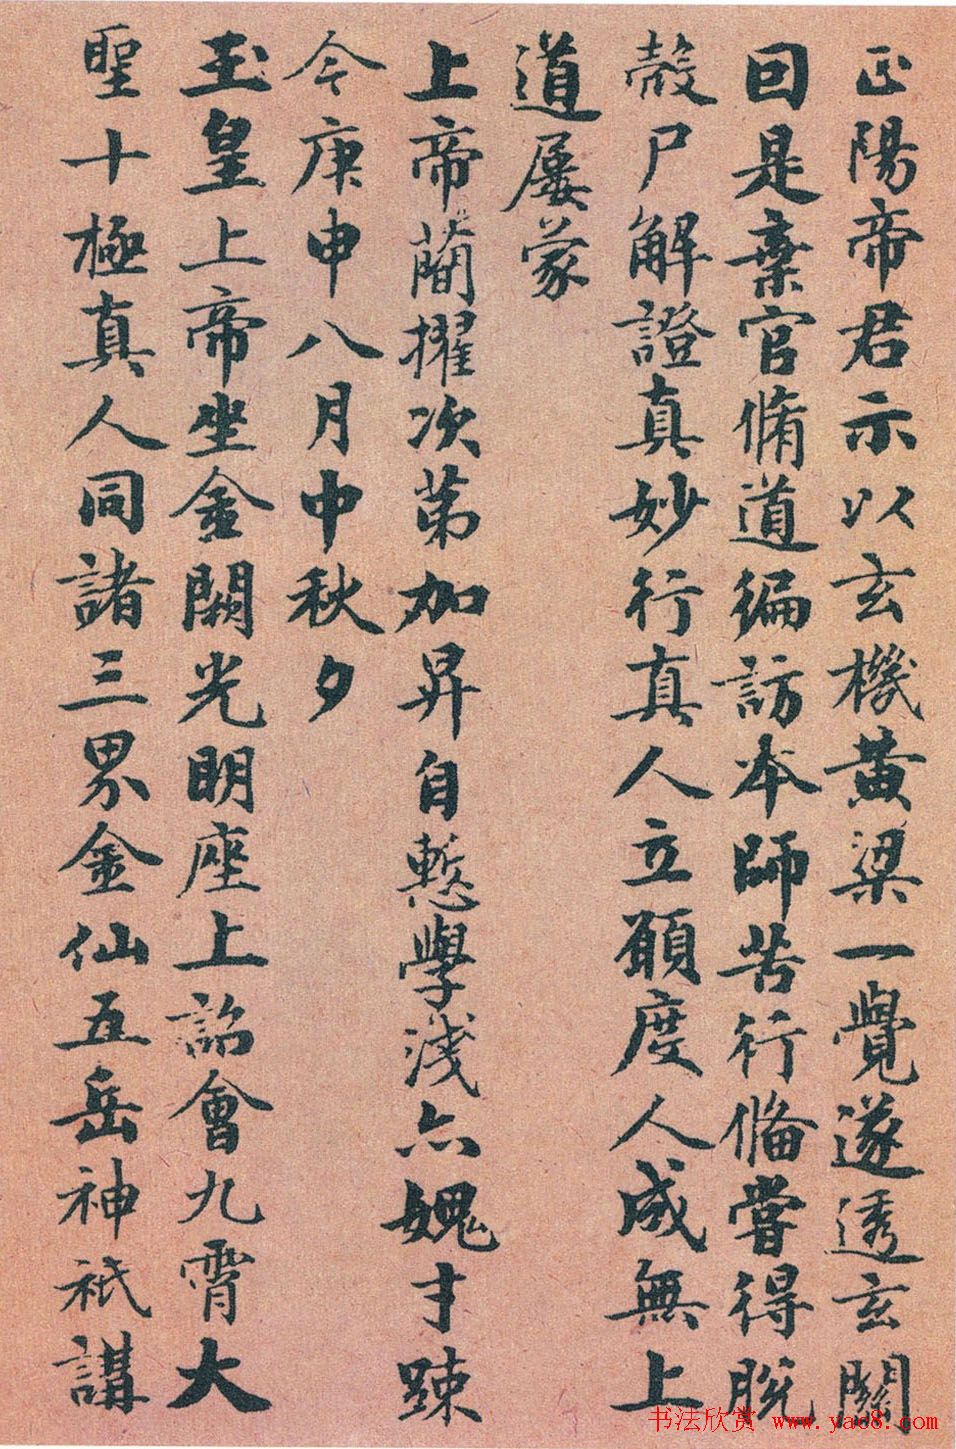 正陽帝君示以玄機黄粱一覺遂透玄關
回是棄官脩道徧訪本師苦行備嘗得脱
殻尸解證真妙行真人立願度人成無上
道屡蒙
上帝蕳擢次第加昇自慙學浅亦媿才踈
今庚申八月中秋夕
玉皇上帝坐金闕光明座上詔會九霄大
聖十極真人同諸三界金仙五岳神祇講
书法欣赏 www.yac8.com